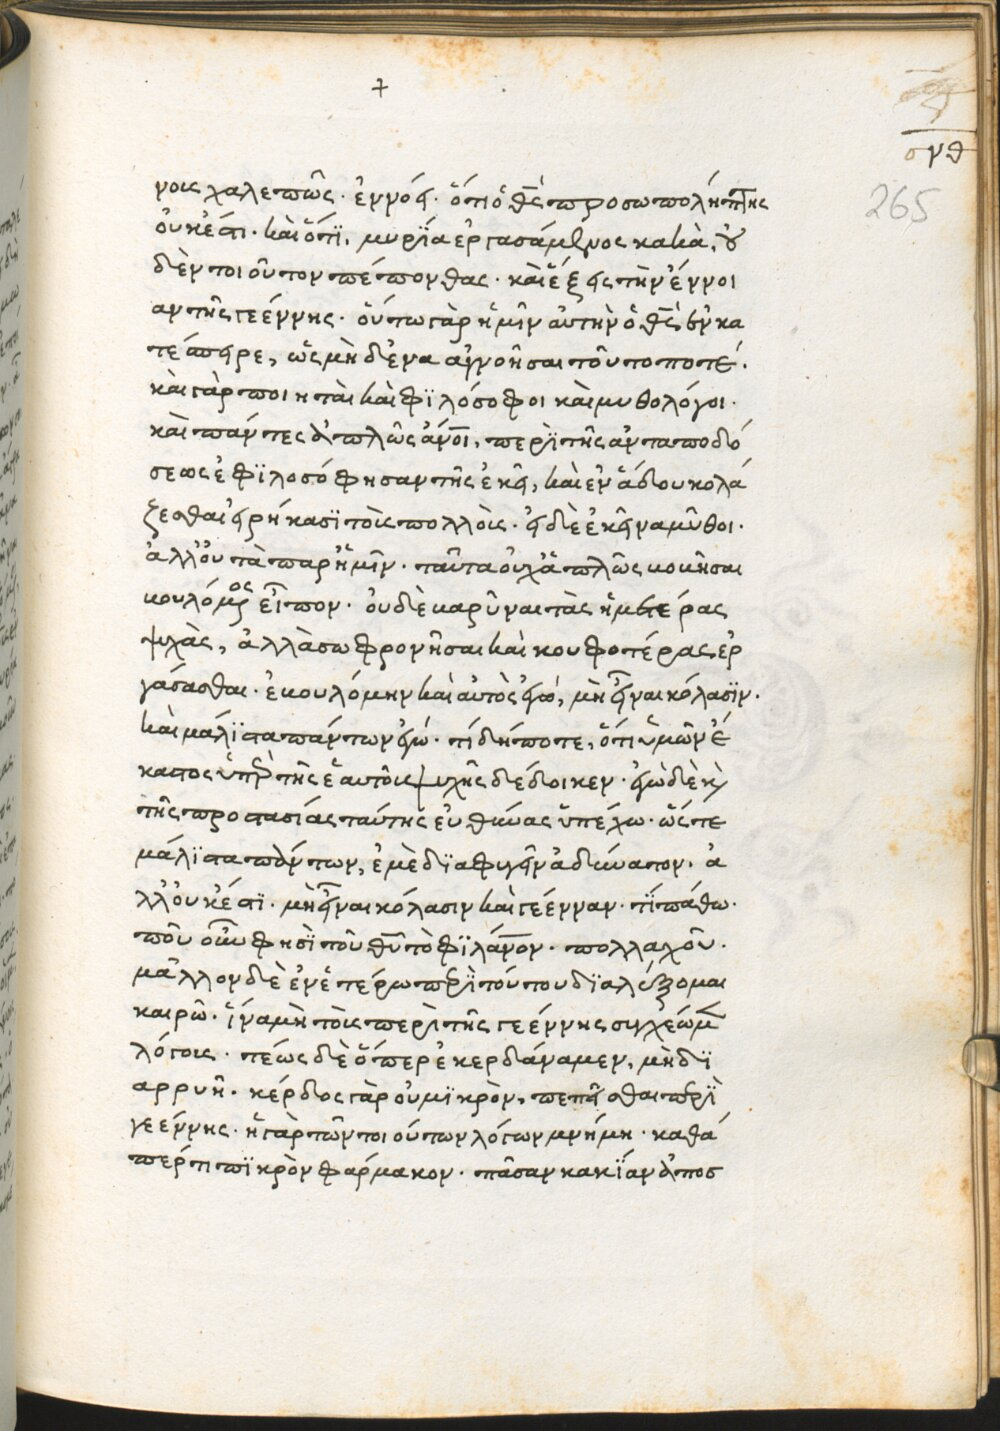 +
σνθ
265
νοις χαλεπῶς· ἐννόει· ὅτι ὁ θς προσωπολήπτης
οὐκ ἔστι· καὶ ὅτι, μυρία ἐργασάμενος κακὰ, οὐ
δὲν τοιοῦτον πέπονθας· καὶ ἕξεις τὴν ἔννοι
αν τῆς γεέννης· οὕτω γὰρ ἡμῖν αὐτὴν ὁ θς ἐγκα
τέσπειρε, ὡς μηδένα ἀγνοῆσαι τοῦτο ποτέ·
καὶ γὰρ ποιηταὶ καὶ φιλόσοφοι καὶ μυθολόγοι·
καὶ πάντες ἁπλῶς ἄνοι, περὶ τῆς ἀνταποδό
σεως ἐφιλοσόφησαν τῆς ἐκεῖ, καὶ ἐν ἅδου κολά
ζεσθαι εἰρήκασι τοὺς πολλοὺς· εἰ δὲ ἐκεῖνα μῦθοι·
ἀλλ' οὐ τὰ παρ' ἡμῖν· ταῦτα οὐχ ἁπλῶς κοκῆσαι
βουλόμενος εἶπον· οὐδὲ βαρῦναι τὰς ἡμετέρας
ψυχὰς, ἀλλὰ σωφρονῆσαι καὶ κουφοτέρας ἐρ
γάσασθαι· ἐβουλόμην καὶ αὐτὸς ἐγώ, μὴ εἶναι κόλασιν·
καὶ μάλιστα πάντων ἐγώ· τί δήποτε, ὅτι ὑμῶν ἕ
καστος ὑπὲρ τῆς ἑαυτοῦ ψυχῆς δέδοικεν· ἐγὼ δὲ καὶ
τῆς προστασίας ταύτης εὐθύνας ὑπέχω· ὥστε
μάλιστα πάντων, ἐμὲ διαφυγεῖν ἀδύνατον· ἀ
λλ' οὐκ ἔστι· μὴ εἶναι κόλασιν καὶ γέενναν· τί πάθω·
ποῦ οὖν φησὶ τοῦ θυ τὸ φιλάνον· πολλαχοῦ·
μᾶλλον δὲ ἐν ἑτέρω περὶ τούτου διαλέξομαι
καιρῶ· ἵνα μὴ τοὺς περὶ τῆς γεέννης συγχέωμεν
λόγους· τέως δὲ ὅπερ ἐκερδάναμεν, μὴ δι
αρρυῆ· κέρδος γὰρ οὐ μικρὸν, πεπεῖσθαι περὶ
γεέννης· ἡ γὰρ τῶν τοιούτων λόγων μνήμη· καθά
περ τι πικρὸν φάρμακον· πᾶσαν κακίαν ἀποσ